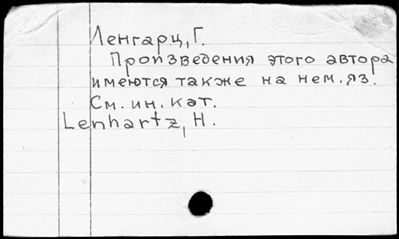 Ленгарц, Г.
Произведения этого автора
имеются также на нем. яз.
См. ин. кат.
Lenhartz, H.